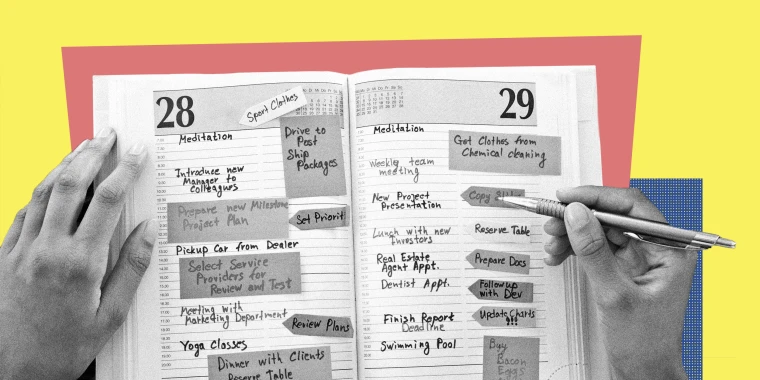 28
Sport Clothes
Meditation
Drive to
Post
Ship
Packages
Introduce new
Manager to
Colleagues
Prepare new Milestone
Project Plan
Set Priorit
Pickup Car from Dealer
Select Service
Providers for
Review and Test
Meeting with
Marketing Department
Review Plans
Yoga Classes
Dinner with Clients
Reserve Table
29
Meditation
Get Clothes from
Chemical cleaning
Weekly team
meeting
New Project
Presentation
Copy
Lunch with new
Investors
Reserve Table
Real Estate
Agent Appt.
Prepare Docs
Dentist Appt.
Follow up
with Dev
Finish Report
Deadline
Update Charts
!!!
Swimming Pool
Buy
Bacon
Eggs